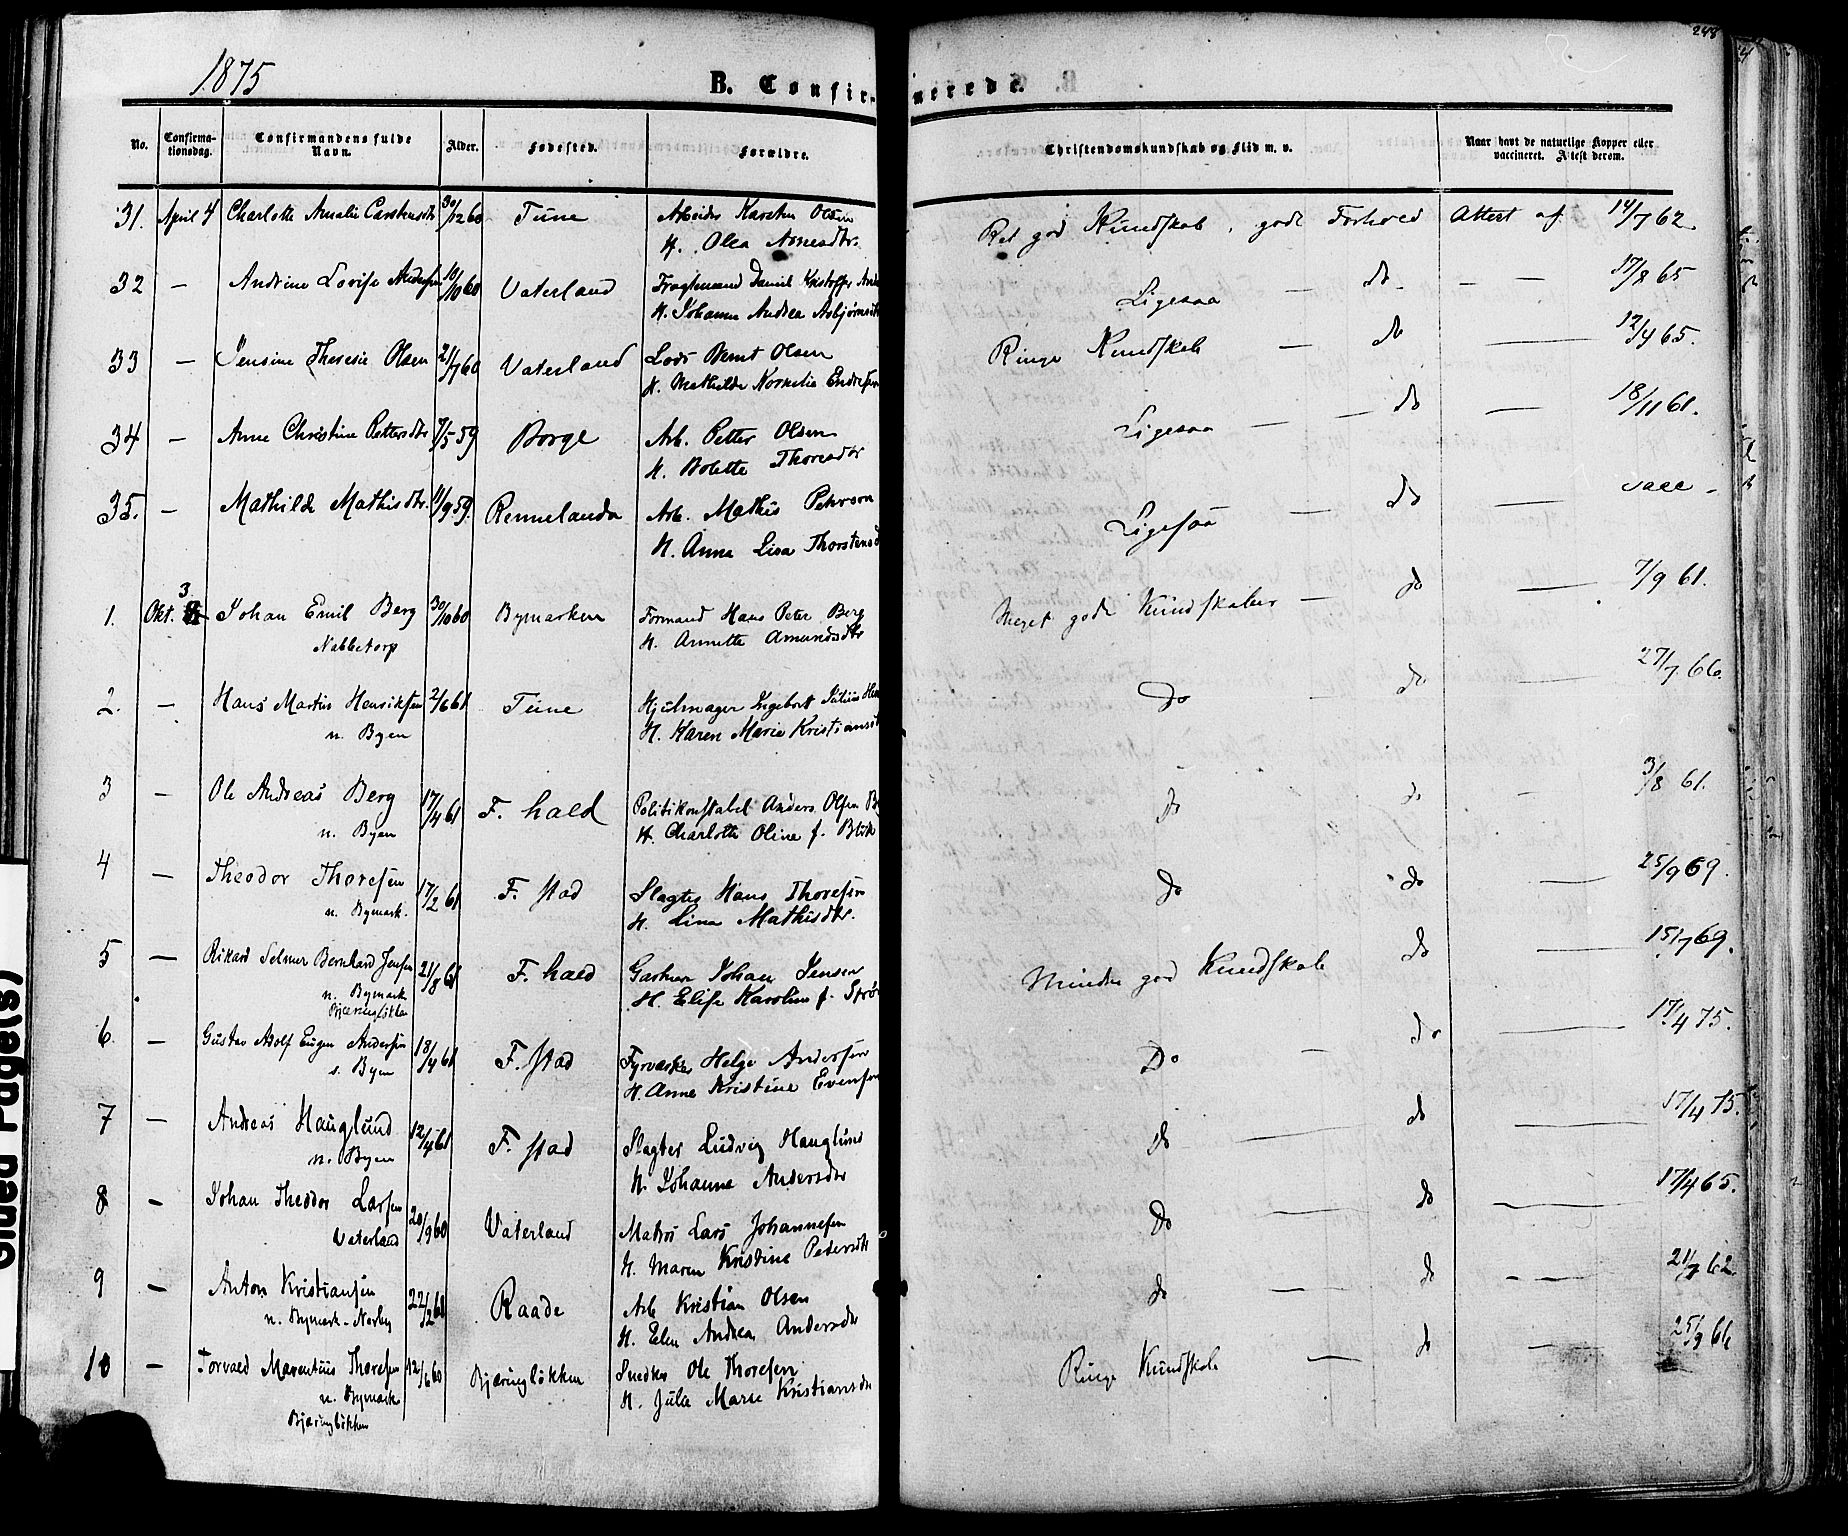 248
1875
B. Confirmerede.
No. Confirmationsdag. Confirmandens fulde Navn. Alder. Fødested. Forældre. Christendomskundskab og Flid m. v. Naar havt de naturlige Kopper eller vaccineret. Attest derom.
31. April 4 Charlotte Amalie Carstensdtr 30/12 60 Tune Arbeider Karsten Olsen Ret god Kundskab, godt Forhold Attest af 14/7 62
H. Olea Arnesdtr.
32 — Andrine Lovise Andersen 10/10 60 Vaterland Fragtemand Daniel Kristoffer Ligesaa — do — — 17/8 65
H. Johanne Andrea Asbjørnsdt
33 — Jensine Theresie Olsen 21/7 60 Vaterland Lods Bernt Olsen Ringe Kundskab — do — 12/9 65.
H. Mathilde Kornelia Endresen
34 — Anne Christine Pettersdtr 7/5 59 Borge Arb. Petter Olsen Ligesaa — do — 18/11 61.
H. Bolette Thoresdtr
35. — Mathilde Mathisdtr. 11/9 59. Rennelanda Arb. Mathis Peterson Ligesaa — do — vacc —
H. Anna Lisa Thorstensd
1. Okt. 3 Johan Emil Berg 30/10 60 Bymarken Formand Hans Peter Berg Meget gode Kundskaber — do — 7/9 61.
Nabbetorp H. Annette Amundsdtr
2. — Hans Martin Henriksen 2/6 61 Tune Hjulmager Ingebort Julius Do — do — 27/7 66.
n. Byen H. Karen Marie Kristiansdt
3 — Ole Andreas Berg 17/4 61 F. hald Politikonstabel Anders Olsen do do — 3/8 61.
n. Byen H. Charlotte Oline f. Blik
4 — Theodor Thoresen 17/2 61 F. stad Slagter Hans Thoresen do do — 25/9 69.
n. Bymark. H. Lina Mathisdtr.
5 — Rikard Selmer Bernhard Jensen 21/8 61 F. hald Gartner Johan Jensen Mindre god Kundskab do — 15/7 69.
n. Bymark H. Elise Karoline f.
Bjæringløkken
6. — Gustav Adolf Eugen Andersen 18/4 61 F. stad Fyrvarker Helge Andersen Do — do — 17/4 75.
s. Byen H. Anne Kristine Evensen
7 — Andreas Hauglund 12/4 61 F. stad Slagter Ludvig Hauglund do — do — 17/4 75.
n. Byen H. Johanne Andersdtr
8 — Johan Theodor Larsen 20/9 60 Vaterland Matros Lars Johannesen do — do — 17/4 65.
Vaterland H. Maren Kristine Pedersdtr
9 — Anton Kristiansen 22/2 60 Raade Arb Kristian Olsen do — do — — 21/7 62.
n. Bymark - Nørby H. Elen Andrea Andersdtr
10 — Torvald Marentius Thoresen 12/6 60 Bjæringløkken Snedker Ole Thoresen Ringe Kundskab — do — 25/9 66
n. Bymark H. Jula Marie Kristiansdtr
Bjæringløkken